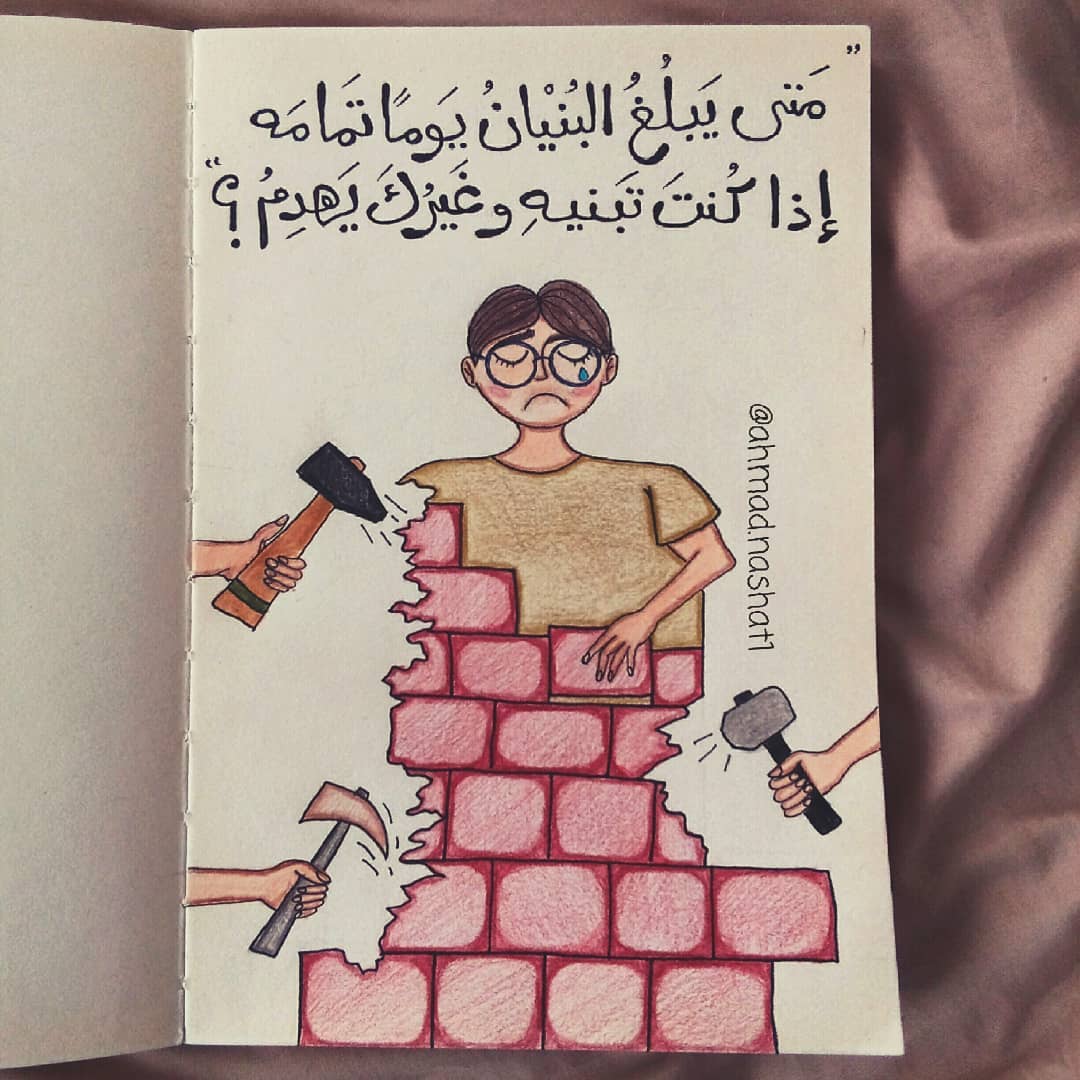 "مَتى يَبلُغُ البُنْيانُ يَومًا تَمامَه
إذا كُنتَ تَبنيهِ وغَيرُكَ يَهدِمُ؟"
@ahmad.nashat1